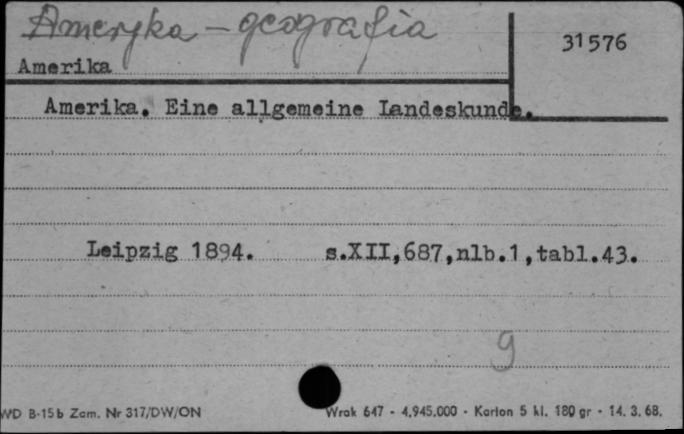 Ameryka - geografia
31576
Amerika
Amerika. Eine allgemeine Landeskunde.
Leipzig 1894. s.XII,687,nlb.1,tabl.43.
9
WD B-15b Zam. Nr 317/DW/ON Wrak 647 - 4.945.000 - Karton 5 kl. 180 gr - 14. 3. 68.